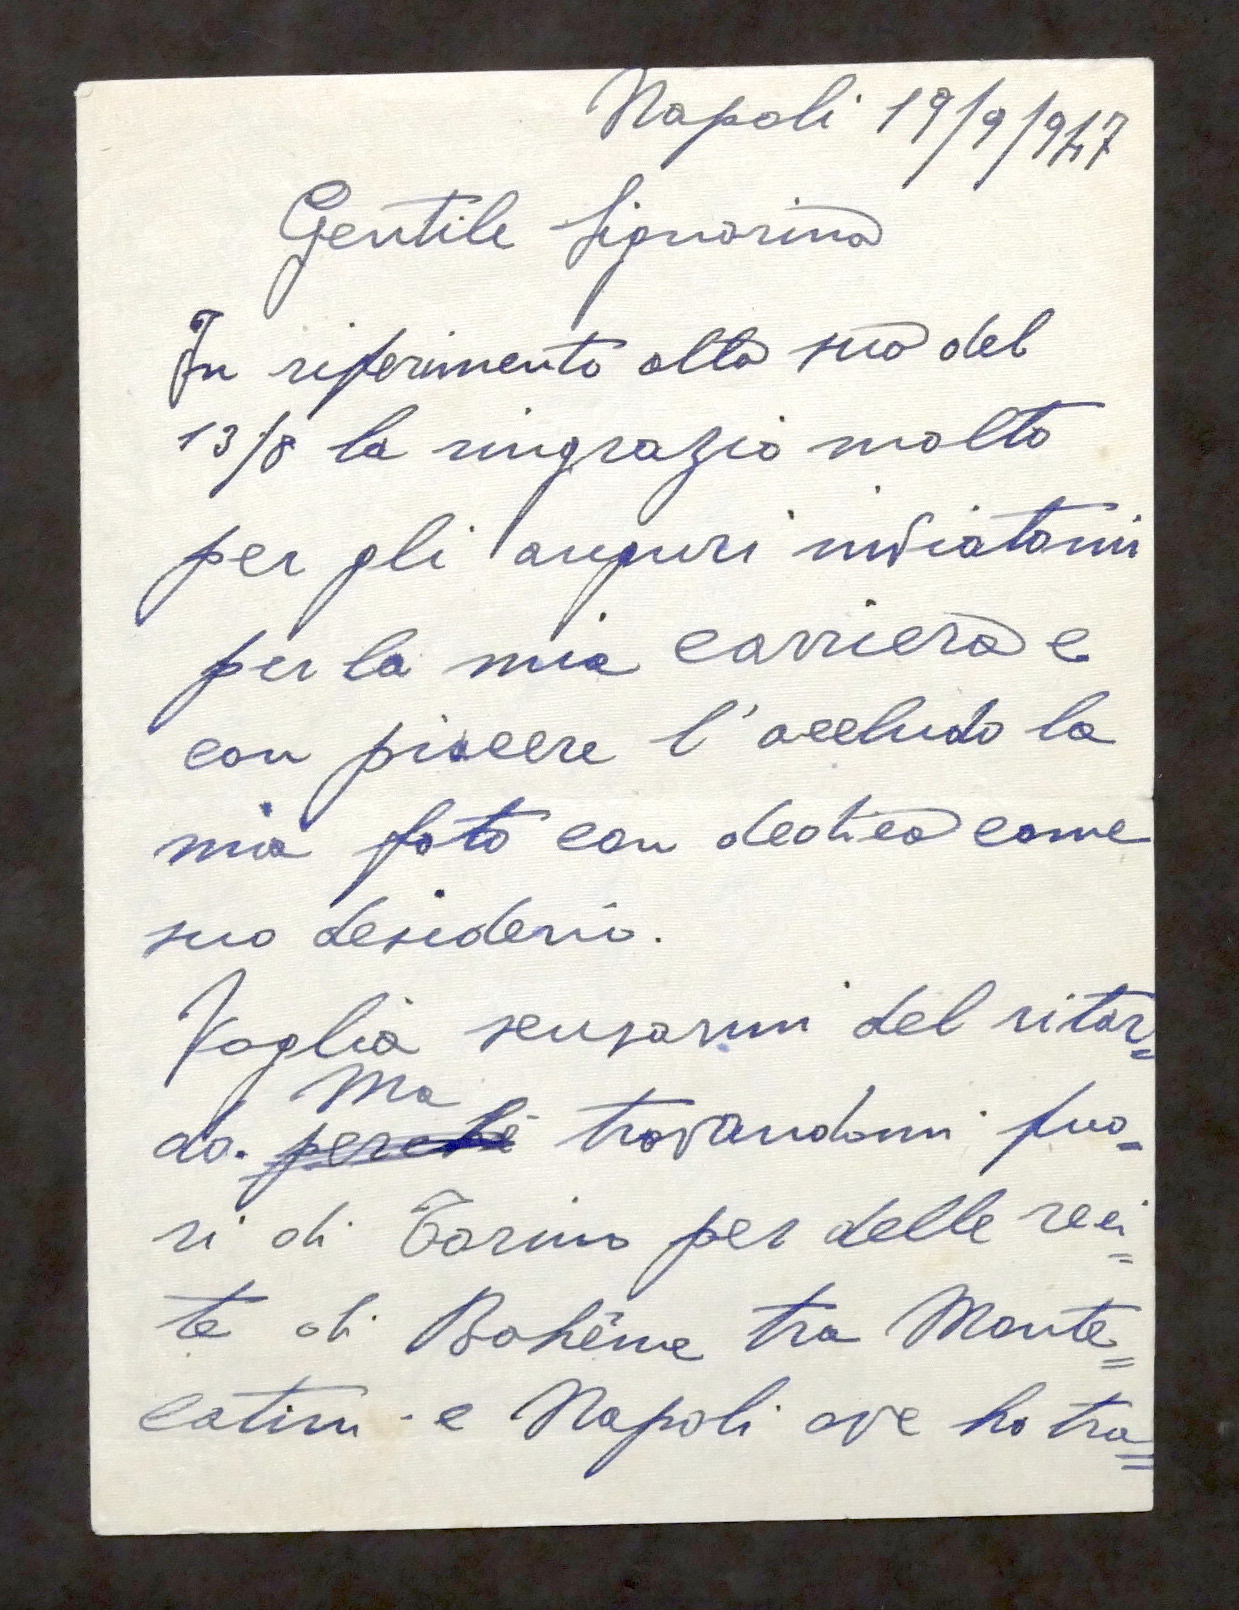 Napoli 19/9/947
Gentile Signorina
In riferimento alla sua del
13/8 la ringrazio molto
per gli auguri inviatomi
per la mia carriera e
con piacere l'accludo la
mia foto con dedica come
suo desiderio.
Voglia scusarmi del ritar=
Ma
do. perchè trovandomi fuo=
ri di Torino per delle reci=
te di Bohême tra Monte=
catini - e Napoli ove ho tra=